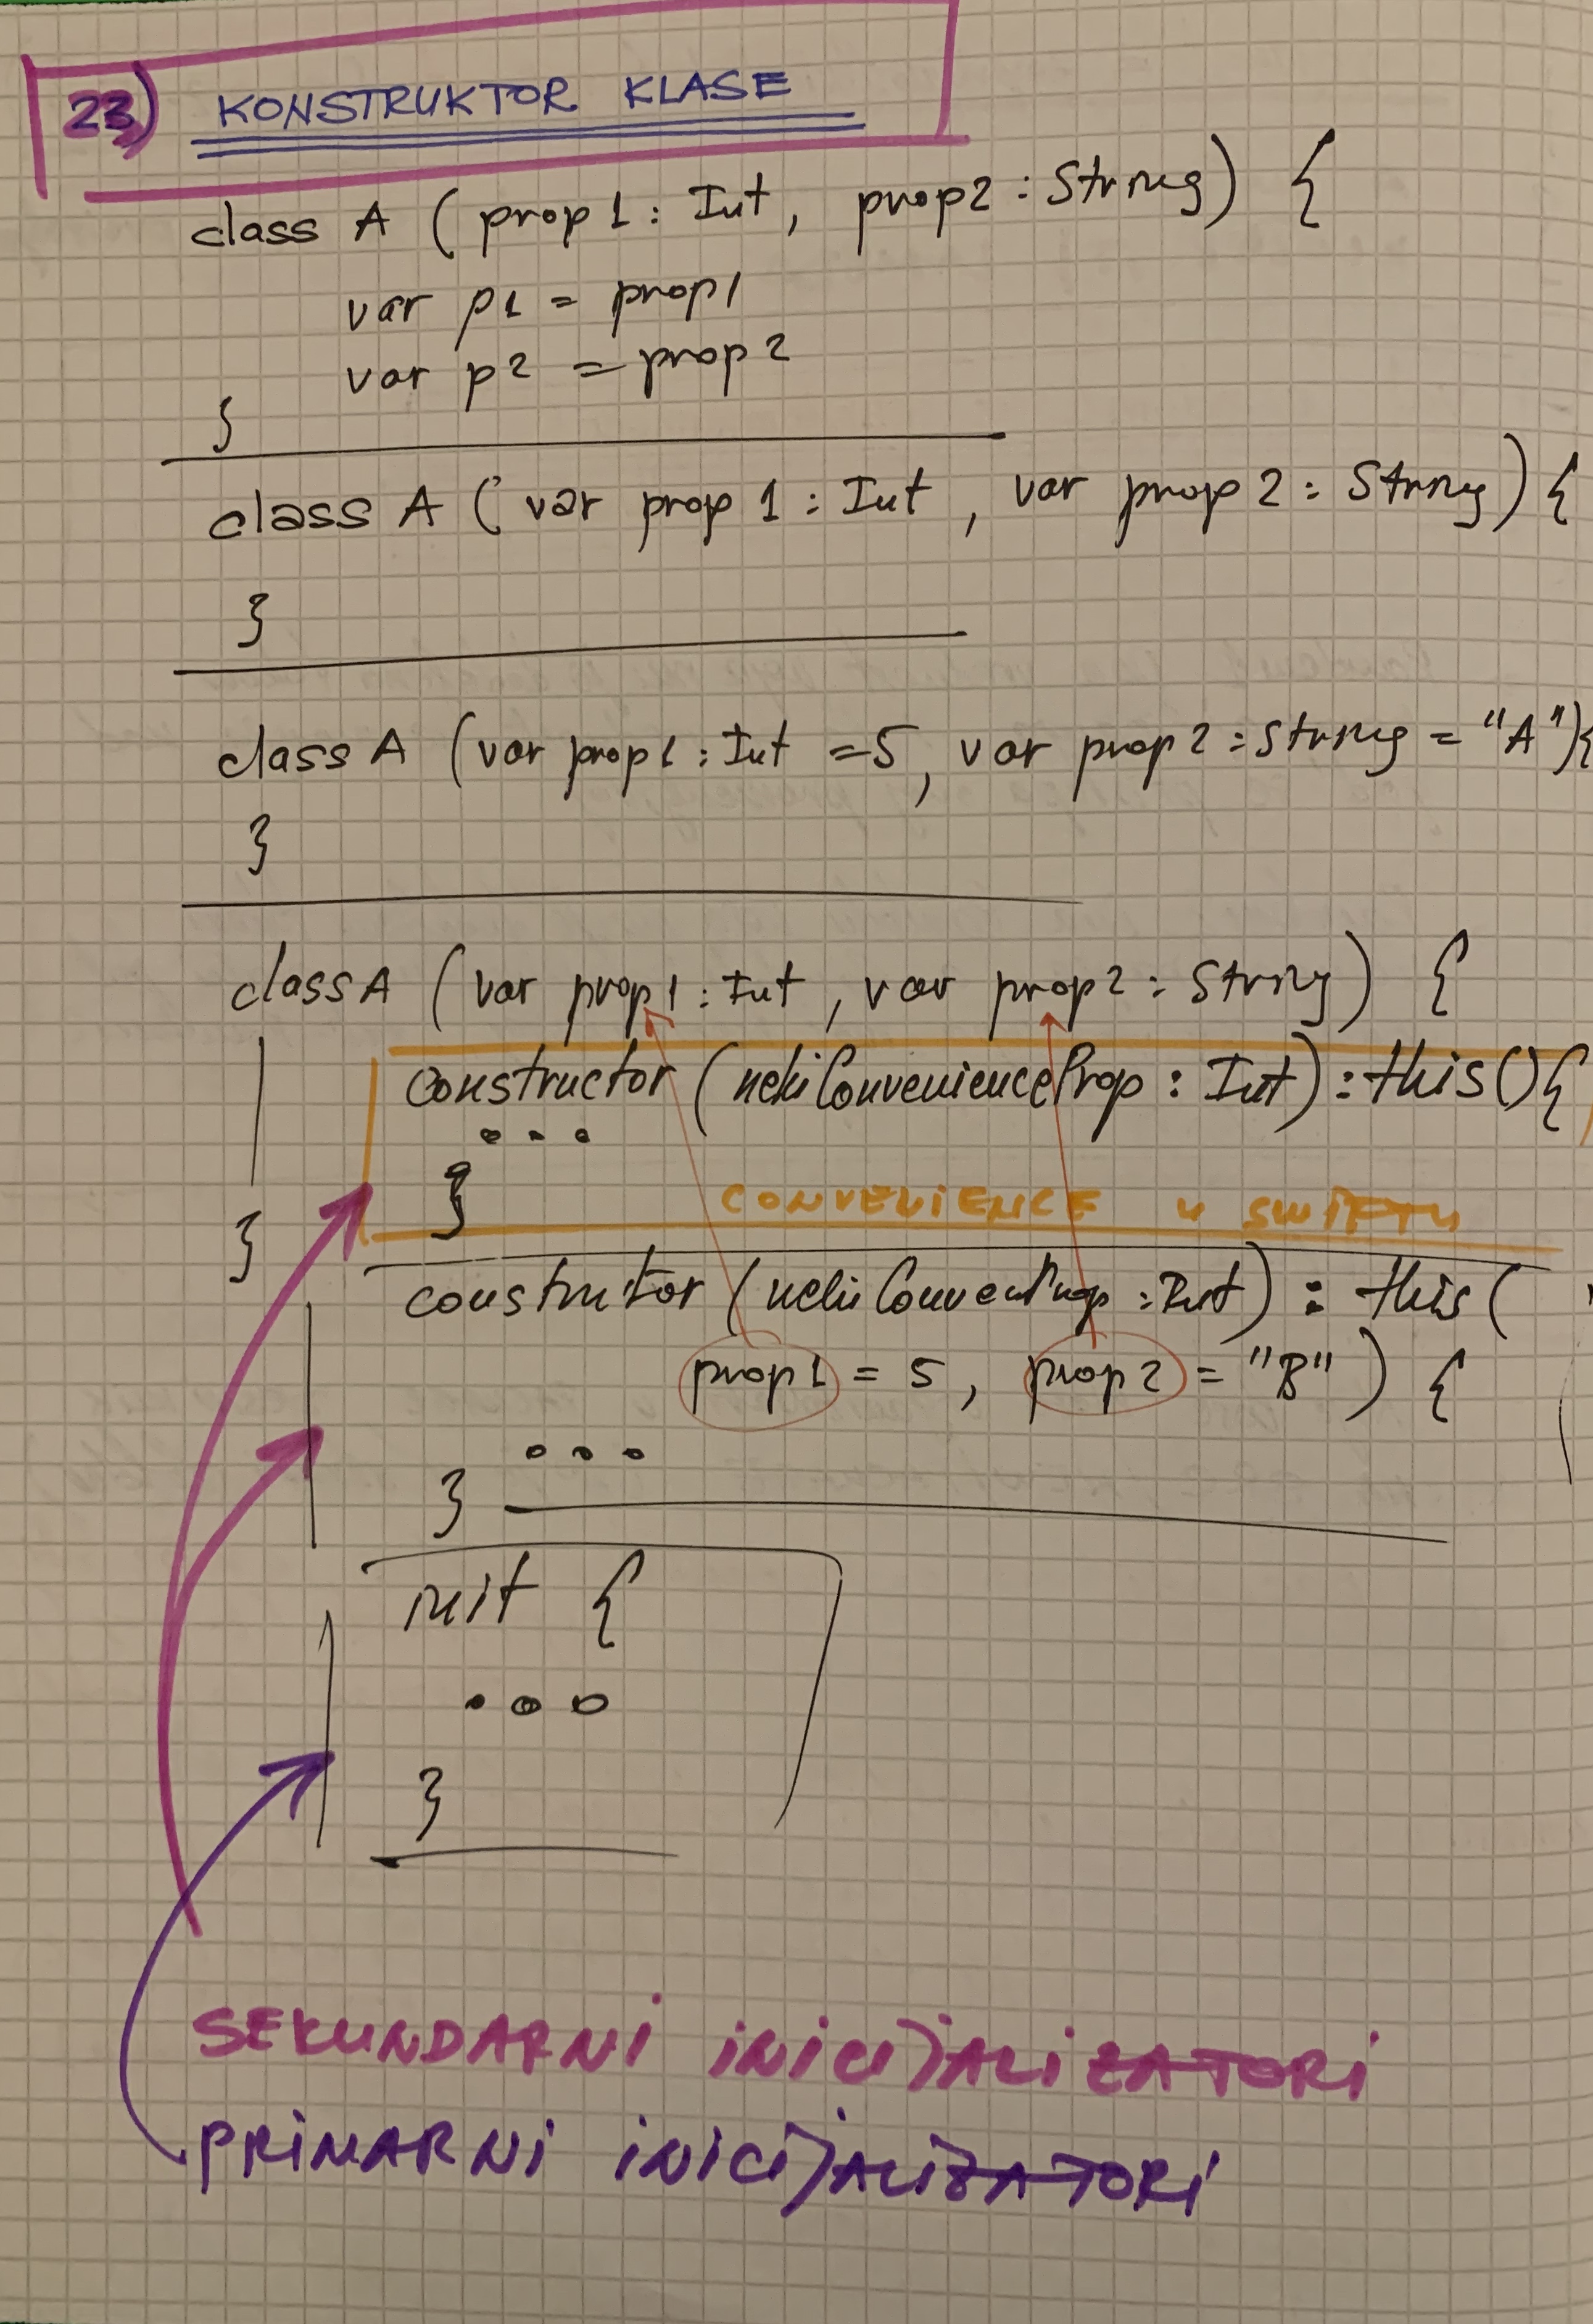 23) KONSTRUKTOR KLASE
class A ( prop1 : Int, prop2 : String) {
var p1 = prop1
var p2 = prop2
}
class A ( var prop1 : Int , var prop2 : String) {
}
class A (var prop1 : Int = 5, var prop2 : String = "A"){
}
class A (var prop1 : Int , var prop2 : String) {
constructor (nekiConvenienceProp : Int) : this(){
...
}
CONVENIENCE u SWIFTU
}
constructor (nekiConvenProp : Int) : this (
prop1 = 5, prop2 = "B" ) {
...
}
init {
...
}
SEKUNDARNI INICIJALIZATORI
PRIMARNI INICIJALIZATORI